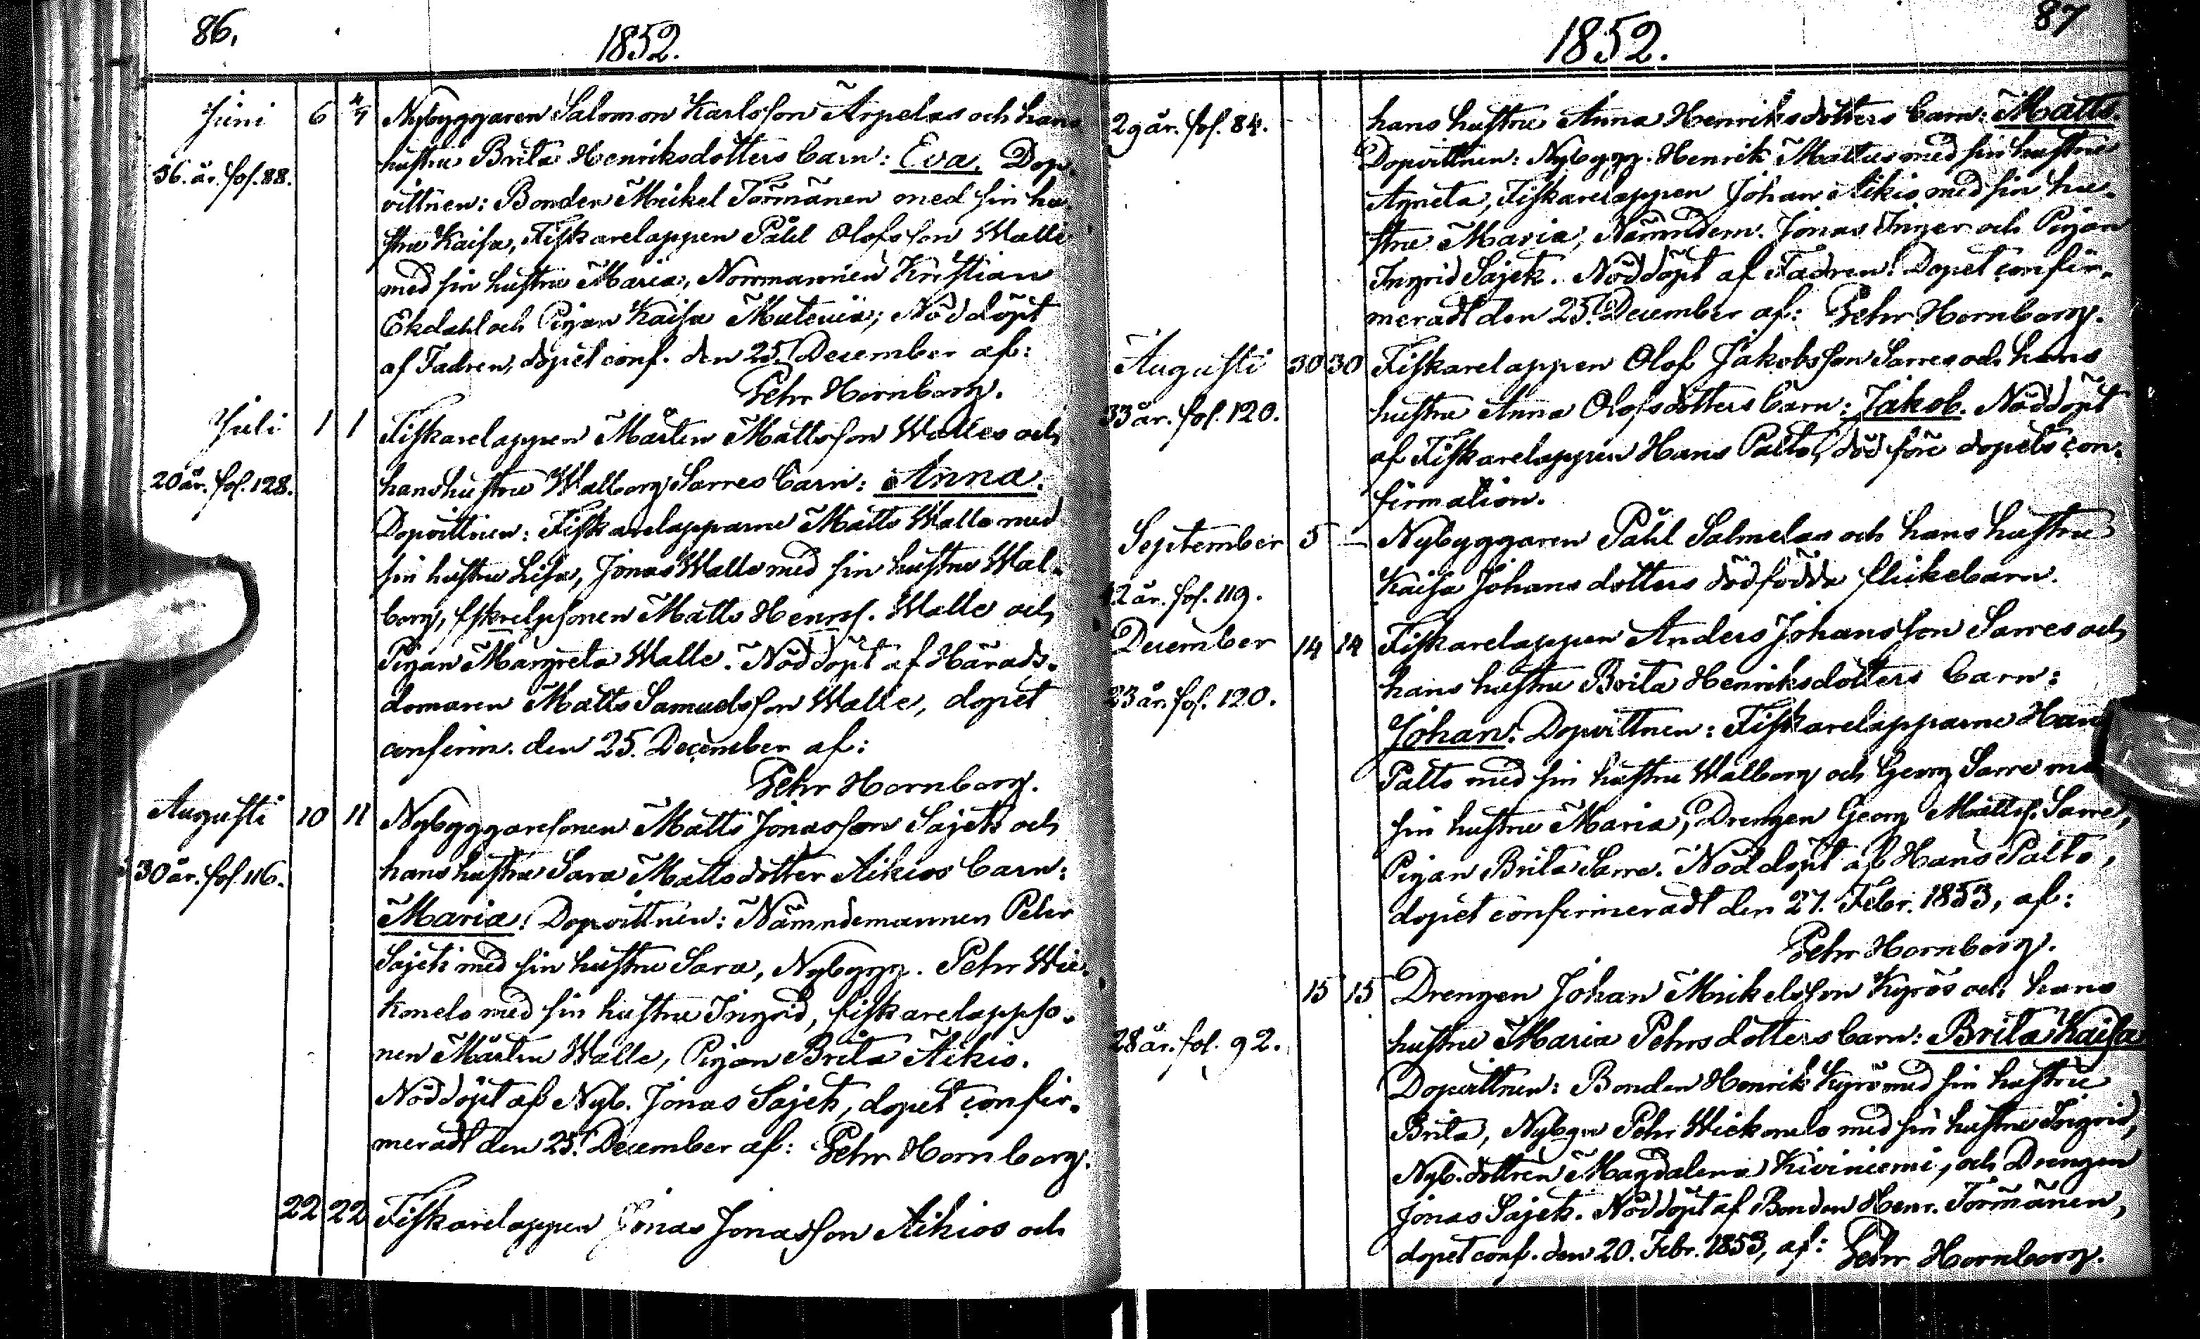 86.
1852.
Juni 6 4/7 Nybyggaren Salomon Karlsson Arpelas och hans
36. år. fol. 88. hustru Brita Henriksdotters barn: Eva. Dop-
vittnen: Bonden Mickel Törmänen med sin hu-
stru Kaisa, Fiskarelappen Påhl Olofsson Walle
med sin hustru Maria, Norrmannen Kristian
Ekdahl och Pigan Kaisa Mutenia; Nöddöpt
af Fadren, dopet conf. den 25. December af:
Pehr Hornborg.
Juli 1 1 Fiskarelappen Mårten Mattsson Walles och
20 år. fol. 128. hans hustru Walborg Sarres barn: Anna.
Dopvittnen: Fiskarelapparne Matts Walle med
sin hustru Lisa, Jonas Walle med sin hustru Wal-
borg, fskrelpsonen Matts Henrs. Walle och
Pigan Margreta Walle. Nöddöpt af Härads-
domaren Matts Samuelsson Walle, dopet
confirm. den 25. December af:
Pehr Hornborg.
Augusti 10 11 Nybyggaresonen Matts Jonasson Sajets och
30 år. fol. 116. hans hustru Sara Mattsdotter Aikios barn:
Maria! Dopvittnen: Nämndemannen Pehr
Sajets med sin hustru Sara, Nybygg. Pehr Wie-
konels med sin hustru Ingrid, fiskarelappso-
nen Mårten Walle, Pigan Brita Aikio.
Nöddöpt af Nyb. Jonas Sajets, dopet confir-
meradt den 25. December af: Pehr Hornborg.
22 22 Fiskarelappen Jonas Jonasson Aikios och
87
1852.
29 år. fol. 84. hans hustru Anna Henriksdotters barn: Matts.
Dopvittnen: Nybygg. Henrik Mattus med sin hustru
Agneta, Fiskarelappen Johan Aikio med sin hu-
stru Maria, Nämndem. Jonas Inger och Pigan
Ingrid Sajek. Nöddöpt af Fadren. Dopet confir-
meradt den 25. December af: Pehr Hornborg.
Augusti 30 30 Fiskarelappen Olof Jakobsson Sarres och hans
33 år. fol. 120. hustru Anna Olofsdotters barn: Jakob. Nöddöpt
af Fiskarelappen Hans Palto, död före dopets con-
firmation.
September 5 – Nybyggaren Påhl Salmelas och hans hustru
42 år. fol. 119. Kaisa Johansdotters dödfödda flickebarn.
December 14 14 Fiskarelappen Anders Johansson Sarres och
23 år. fol. 120. hans hustru Brita Henriksdotters barn:
Johan: Dopvittnen: Fiskarelapparne Han
Palto med sin hustru Walborg och Georg Sarre me
sin hustru Maria, Drengen Georg Mattss. Sarre,
Pigan Brita Sarre. Nöddöpt af Hans Palto,
dopet confirmeradt den 27. Febr. 1853, af:
Pehr Hornborg.
15 15 Drengen Johan Mickelsson Kyrös och hans
28 år. fol. 92. hustru Maria Pehrsdotters barn: Brita Kaisa
Dopvittnen: Bonden Henrik Kyrö med sin hustru
Brita, Nybyg. Pehr Wiekonels med sin hustru Ingrid,
Nyb. dottren Magdalena Kiviniemi, och Drengen
Jonas Sajets. Nöddöpt af Bonden Henr. Törmänen,
dopet conf. den 20. Febr. 1853, af: Pehr Hornborg.